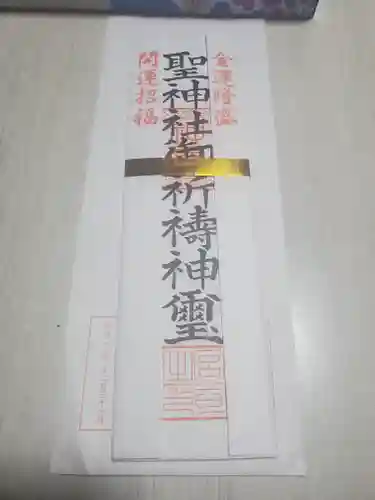 金運隆盛
聖神社御祈禱神璽
開運招福